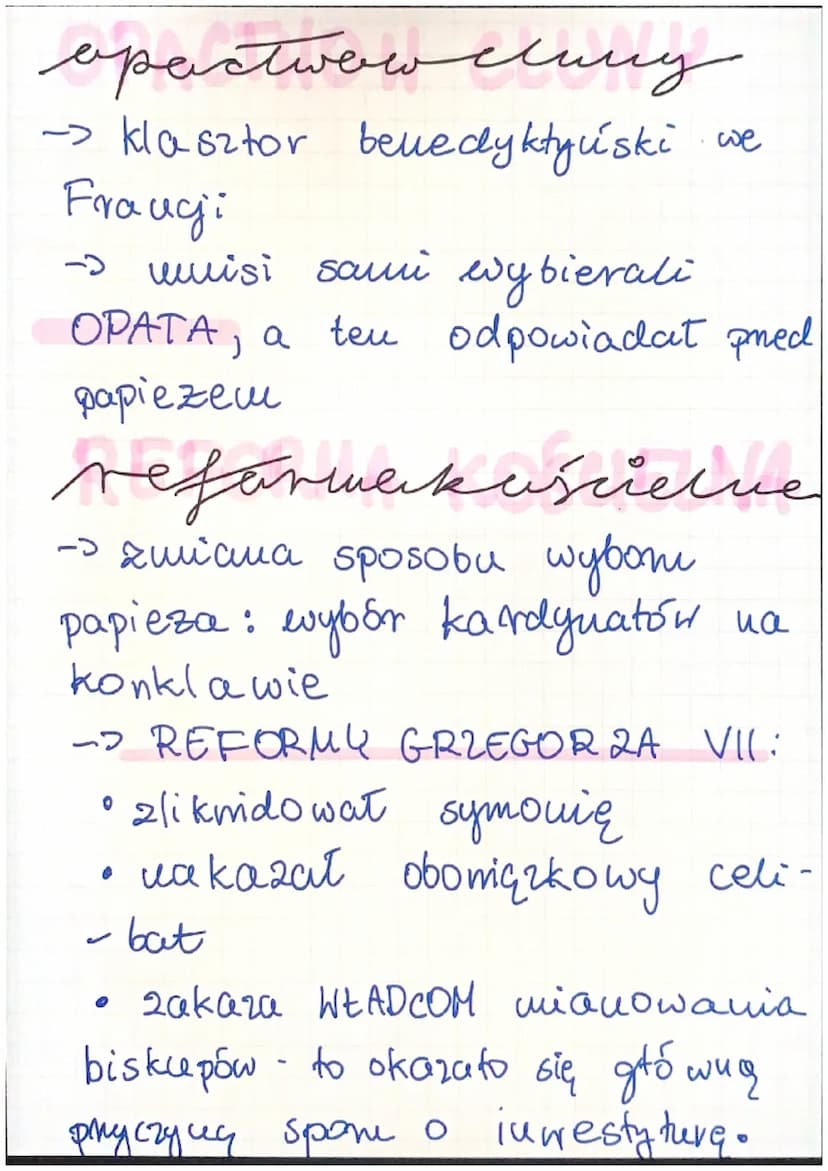 opactwo w cluny
-> klasztor benedyktyński we
Francji
-> mnisi sami wybierali
OPATA, a ten odpowiadał przed
papieżem
reforma kościelna
-> zmiana sposobu wyboru
papieża: wybór kardynałów na
konklawie
-> REFORMY GRZEGORZA VII:
• zlikwidował symonię
• nakazał obowiązkowy celi-
- bat
• zakaza WŁADCOM mianowania
biskupów - to okazało się główną
przyczyną sporu o inwestyturę.